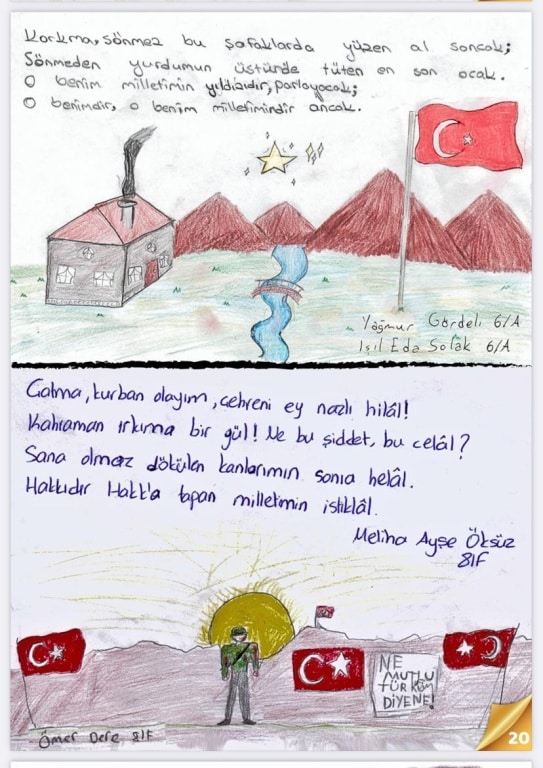 Korkma, sönmez bu şafaklarda yüzen al sancak;
Sönmeden yurdumun üstünde tüten en son ocak.
O benim milletimin yıldızıdır, parlayacak;
O benimdir, o benim milletimindir ancak.
Yağmur Gördeli 6/A
Işıl Eda Solak 6/A
Çatma, kurban olayım, çehreni ey nazlı hilâl!
Kahraman ırkıma bir gül! Ne bu şiddet, bu celâl?
Sana olmaz dökülen kanlarımız sonra helâl.
Hakkıdır Hakk'a tapan milletimin istiklâl.
Meliha Ayşe Öksüz
8/F
NE
MUTLU
TÜRKÜM
DİYENE!
Ömer Dere 8/F
20